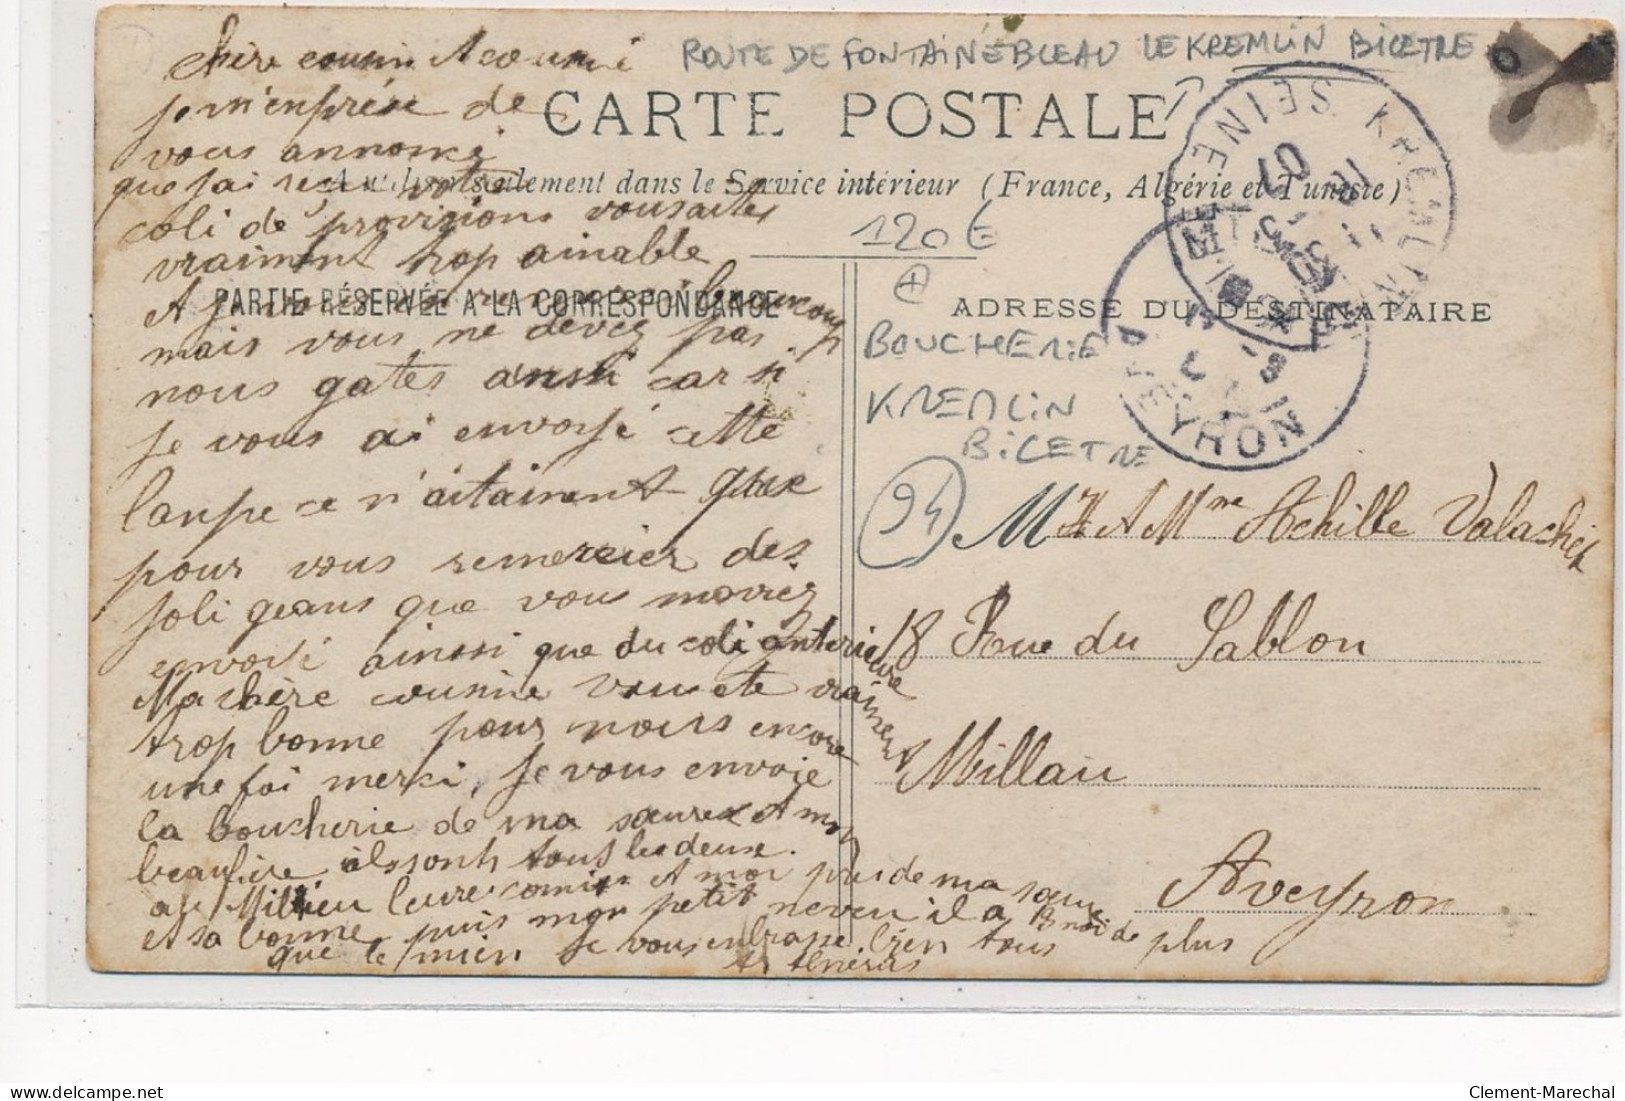 ROUTE DE FONTAINEBLEAU LE KREMLIN BICETRE
CARTE POSTALE
seulement dans le Service intérieur (France, Algérie et Tunisie)
PARTIE RÉSERVÉE A LA CORRESPONDANCE
chère cousin et cousine
je m'enprèse de
vous annonce
que j'ai reçu votre
coli de provizions vous aites
vraiment trop aimable
mais vous ne devez pas
nous gates ainsi car si
je vous ai envoyé cette
lanpe ce n'aitaiment que
pour vous remercier des
joli geans que vous m'avez
envoyé ainssi que du coli anterieure
Ma chère cousine vous ete vraiment
trop bonne pour nous encore
une foi merci, je vous envoie
la boucherie de ma sœure et mon
beaufire ils sonts tous les deux.
au Millieu leure commis et moi pres de ma sœur
et sa bonne puis mon petit neveu il a 8 mois de plus
que le mien je vous enbrasse bien tous
120€
+
BOUCHERIE
KREMLIN
BICETRE
94
ADRESSE DU DESTINATAIRE
KREMLIN
SEINE
AVEYRON
Mr et Mme Achille Valachet
18 Rue du Sablon
Millau
Aveyron
delcampe.net
Clement-Marechal